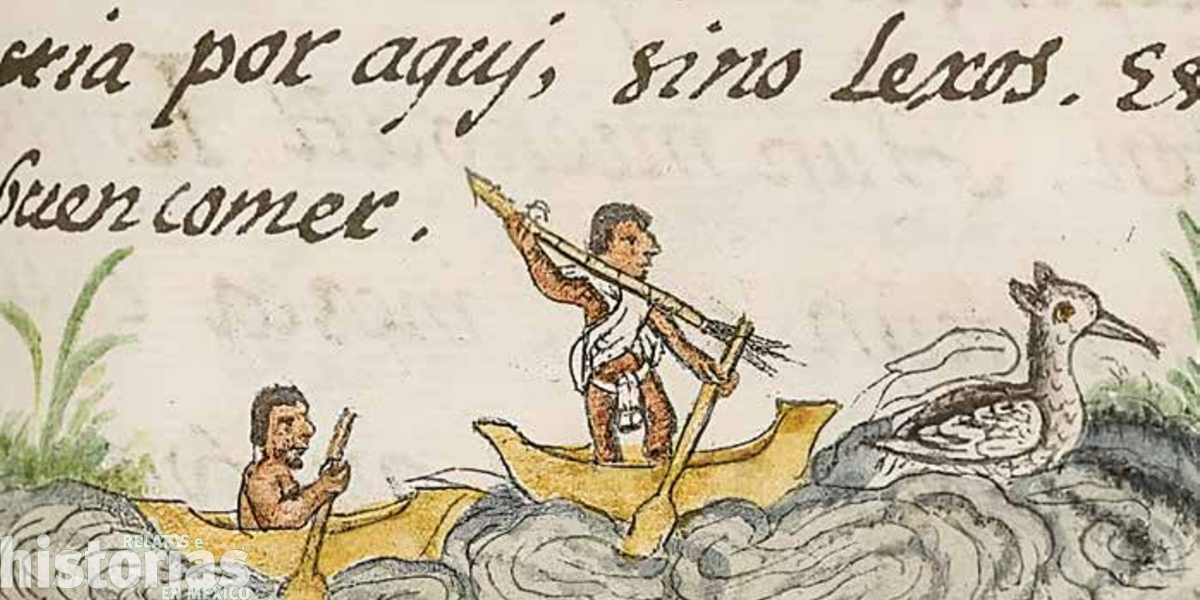 cria por aquj, sino lexos. Es
buen comer.
RELATOS e
historias
EN MÉXICO